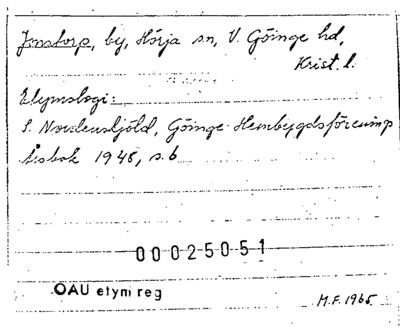 Jonstorp, by, Hörja sn, V. Göinge hd,
Krist. l.
Etymologi:
S. Nordenskjöld, Göinge Hembygdsförenings
Årsbok 1948, s. 6
00025051
OAU etym reg
M.F. 1965